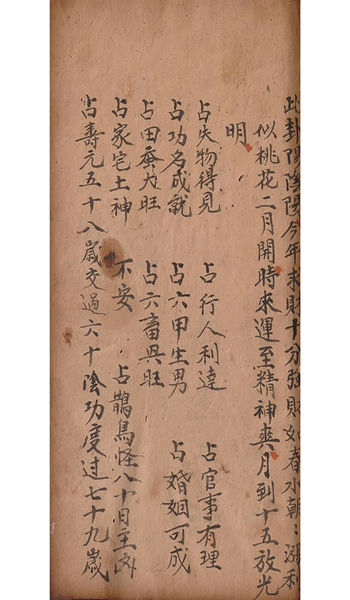 此卦陽陰陽今年来財十分強財如春水朝〻漲利
似桃花二月開時來運至精神爽月到十五放光
明
占失物得見 占行人利達 占官事有理
占功名成就 占六甲生男 占婚姻可成
占田蚕大旺 占六畜興旺
占家宅土神不安 占鵲鳥怪八十日主凶
占壽元五十八歲交過六十陰功度过七十九歲